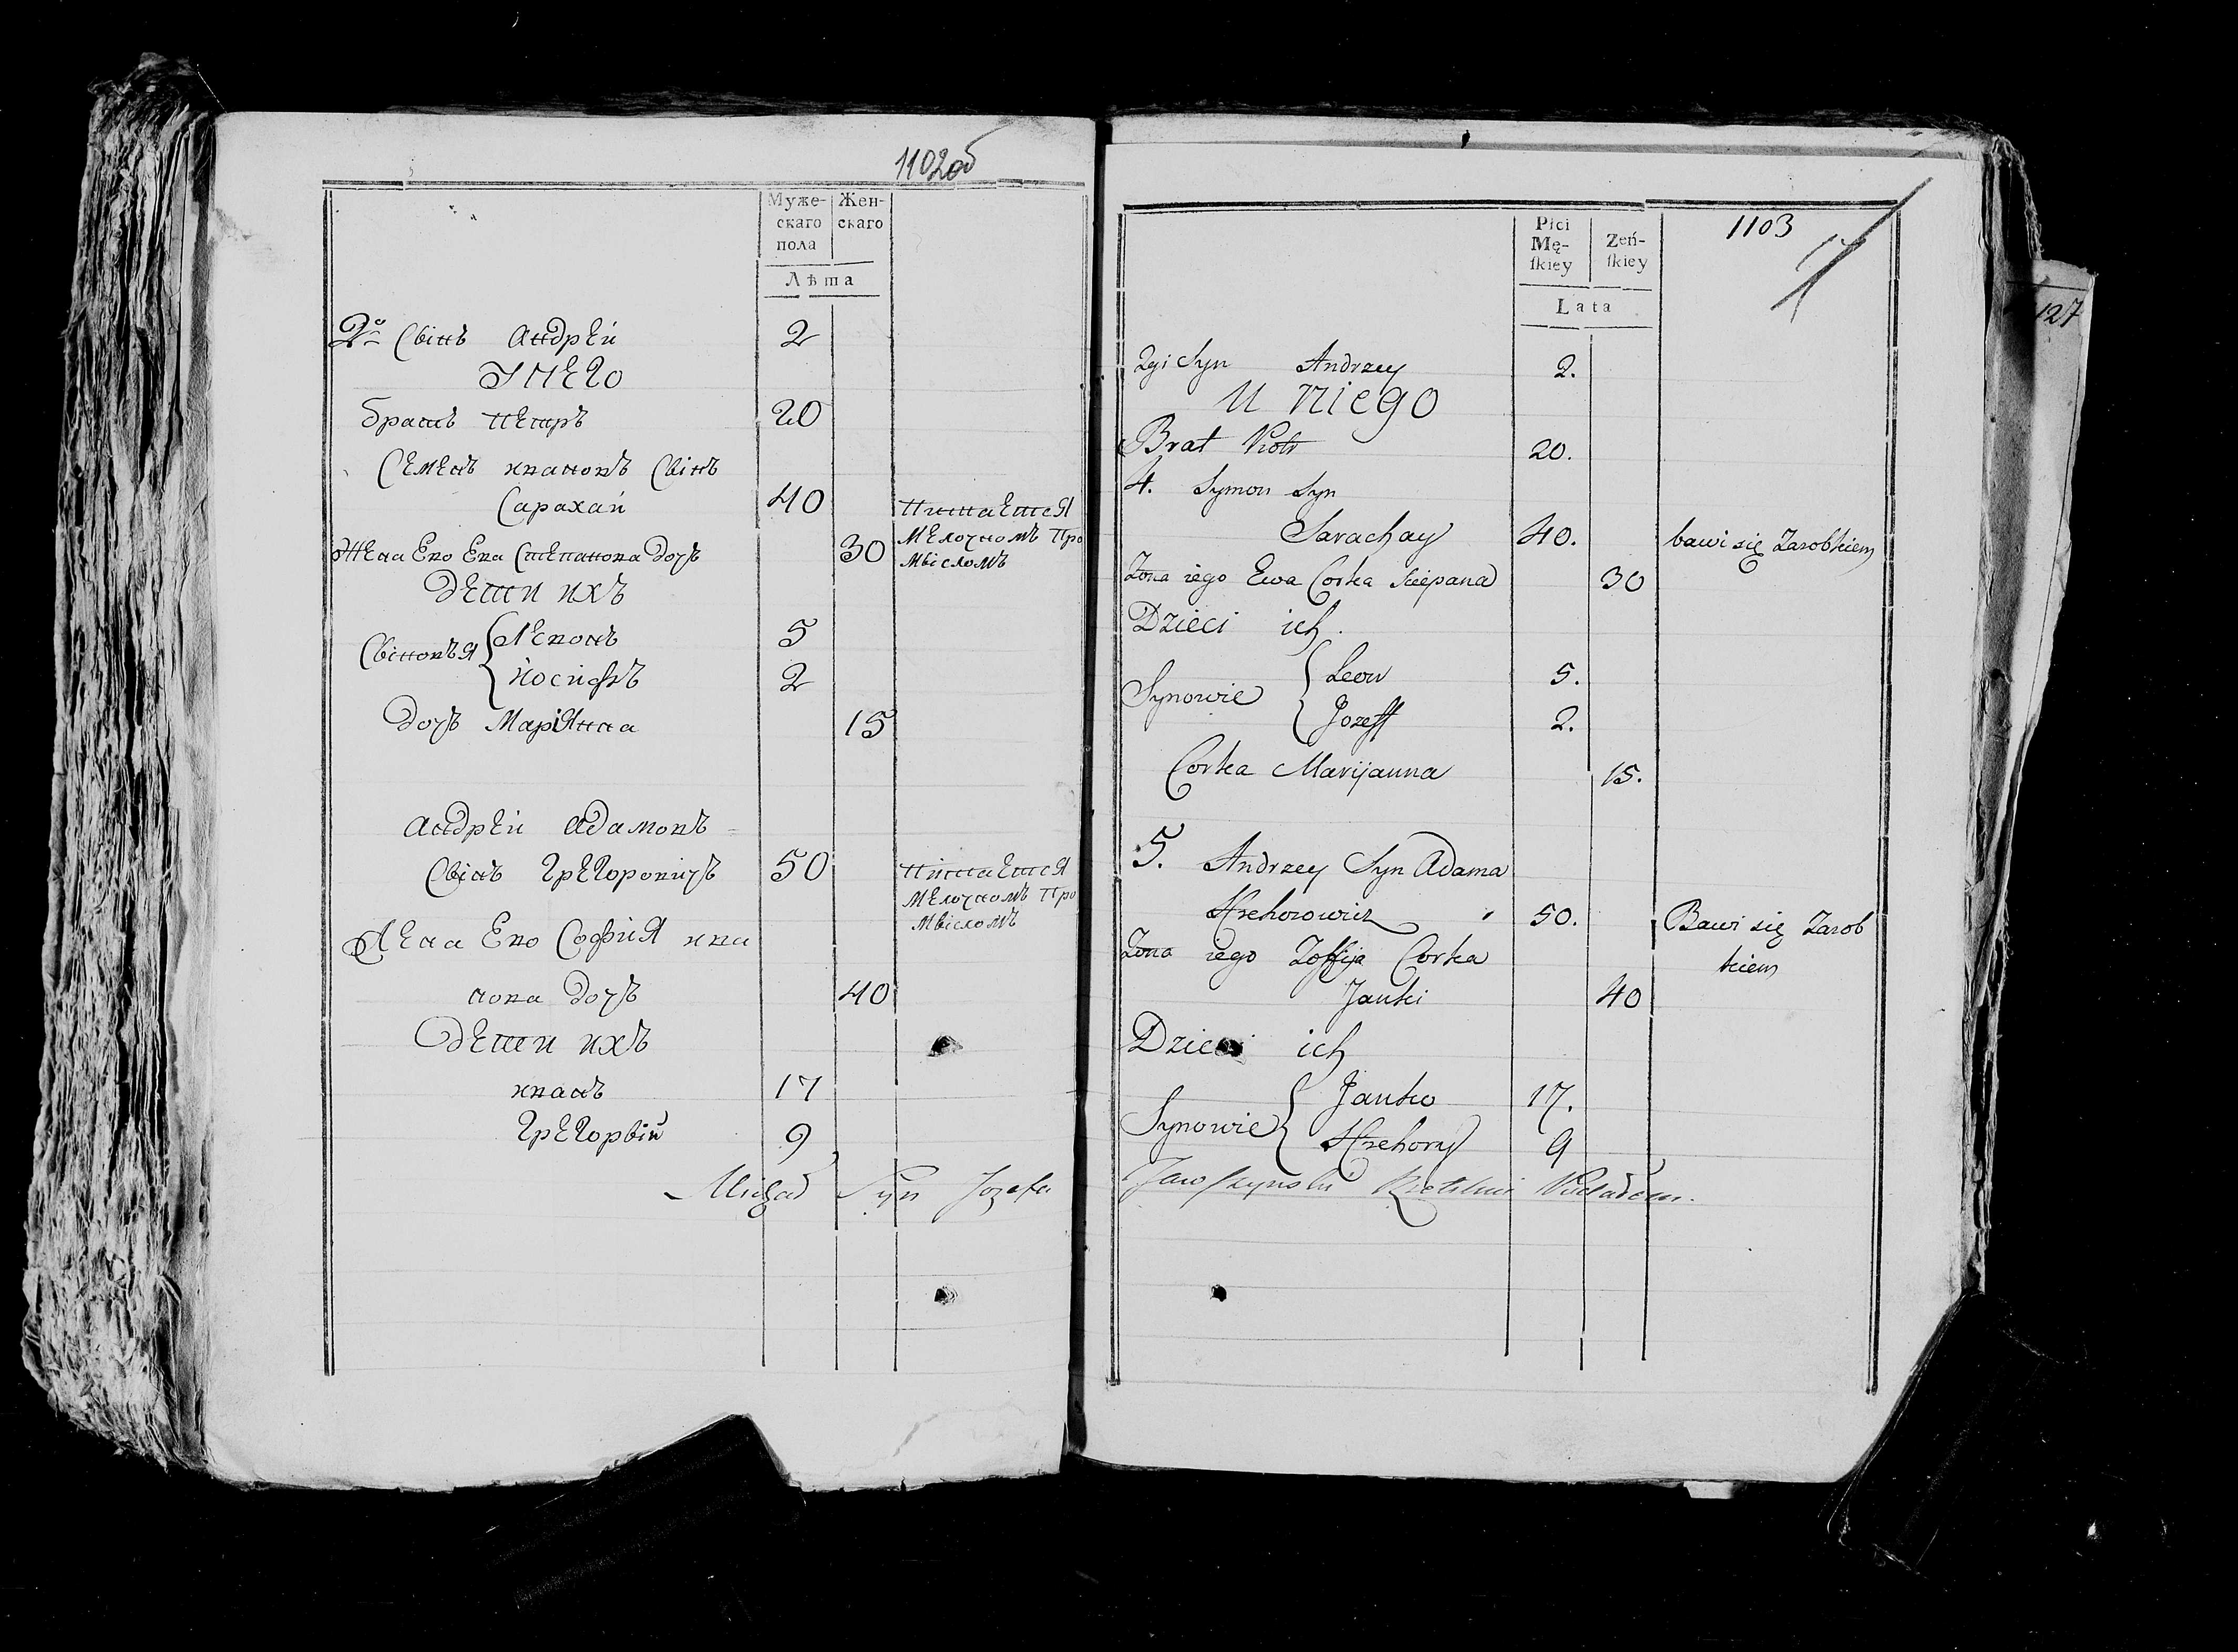 1102об
Муже-
скаго
пола
Жен-
скаго
Лѣта
2й Свінъ Андрей 2
У него
братъ петръ 20
Семенъ ивановъ Свінъ
Сарахай 40
питается
мелочномъ про
мвісломъ
Жена Ево Ева Степанова дочъ 30
дети ихъ
Свіновъя
Левонъ 5
йосифъ 2
дочъ Маріянна 15
Андрей Адамовъ
Свінъ грегоровичъ 50
пітается
мелочномъ про
мвісломъ
Жена Ево София ива
нова дочъ 40
дети ихъ
иванъ 17
грегорвій 9
Michał Syn Jozefa
1103
Płci
Mę-
ſkiey
Zeń-
ſkiey
Lata
127
2gi Syn Andrzey 2.
u niego
Brat Piotr 20.
4. Symon Syn
Sarachay 40. bawi się Zarobkiem
Żona iego Ewa Corka Sciepana 30
Dzieci ich.
Synowie
Leon 5.
Jozeff 2.
Corka Marijanna 15.
5. Andrzey Syn Adama
Hrehorowicz 50. Bawi się Zarob
kiem
Żona iego Zoffija Corka
Janki 40
Dzieci ich
Synowie
Janko 17.
Hrehory 9